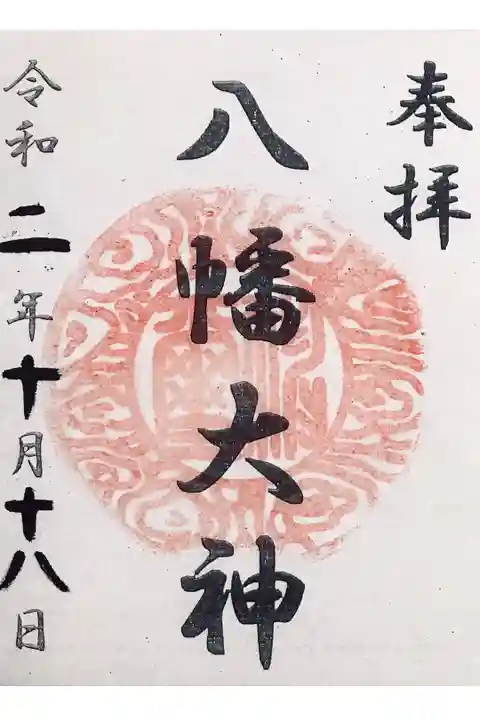 奉拝
八幡大神
令和二年十月十八日